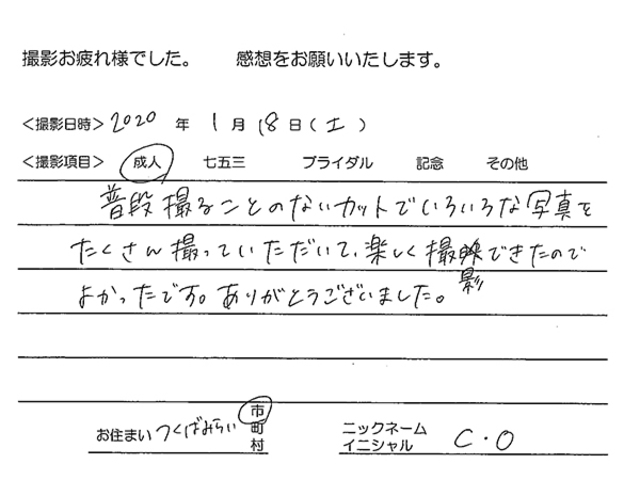 撮影お疲れ様でした。　感想をお願いいたします。
<撮影日時> 2020 年 1 月 18 日 (土)
<撮影項目> 成人 七五三 ブライダル 記念 その他
普段撮ることのないカットでいろいろな写真を
たくさん撮っていただいて、楽しく撮影できたので
よかったです。ありがとうございました。
お住まい つくばみらい 市 町 村
ニックネーム イニシャル C・O